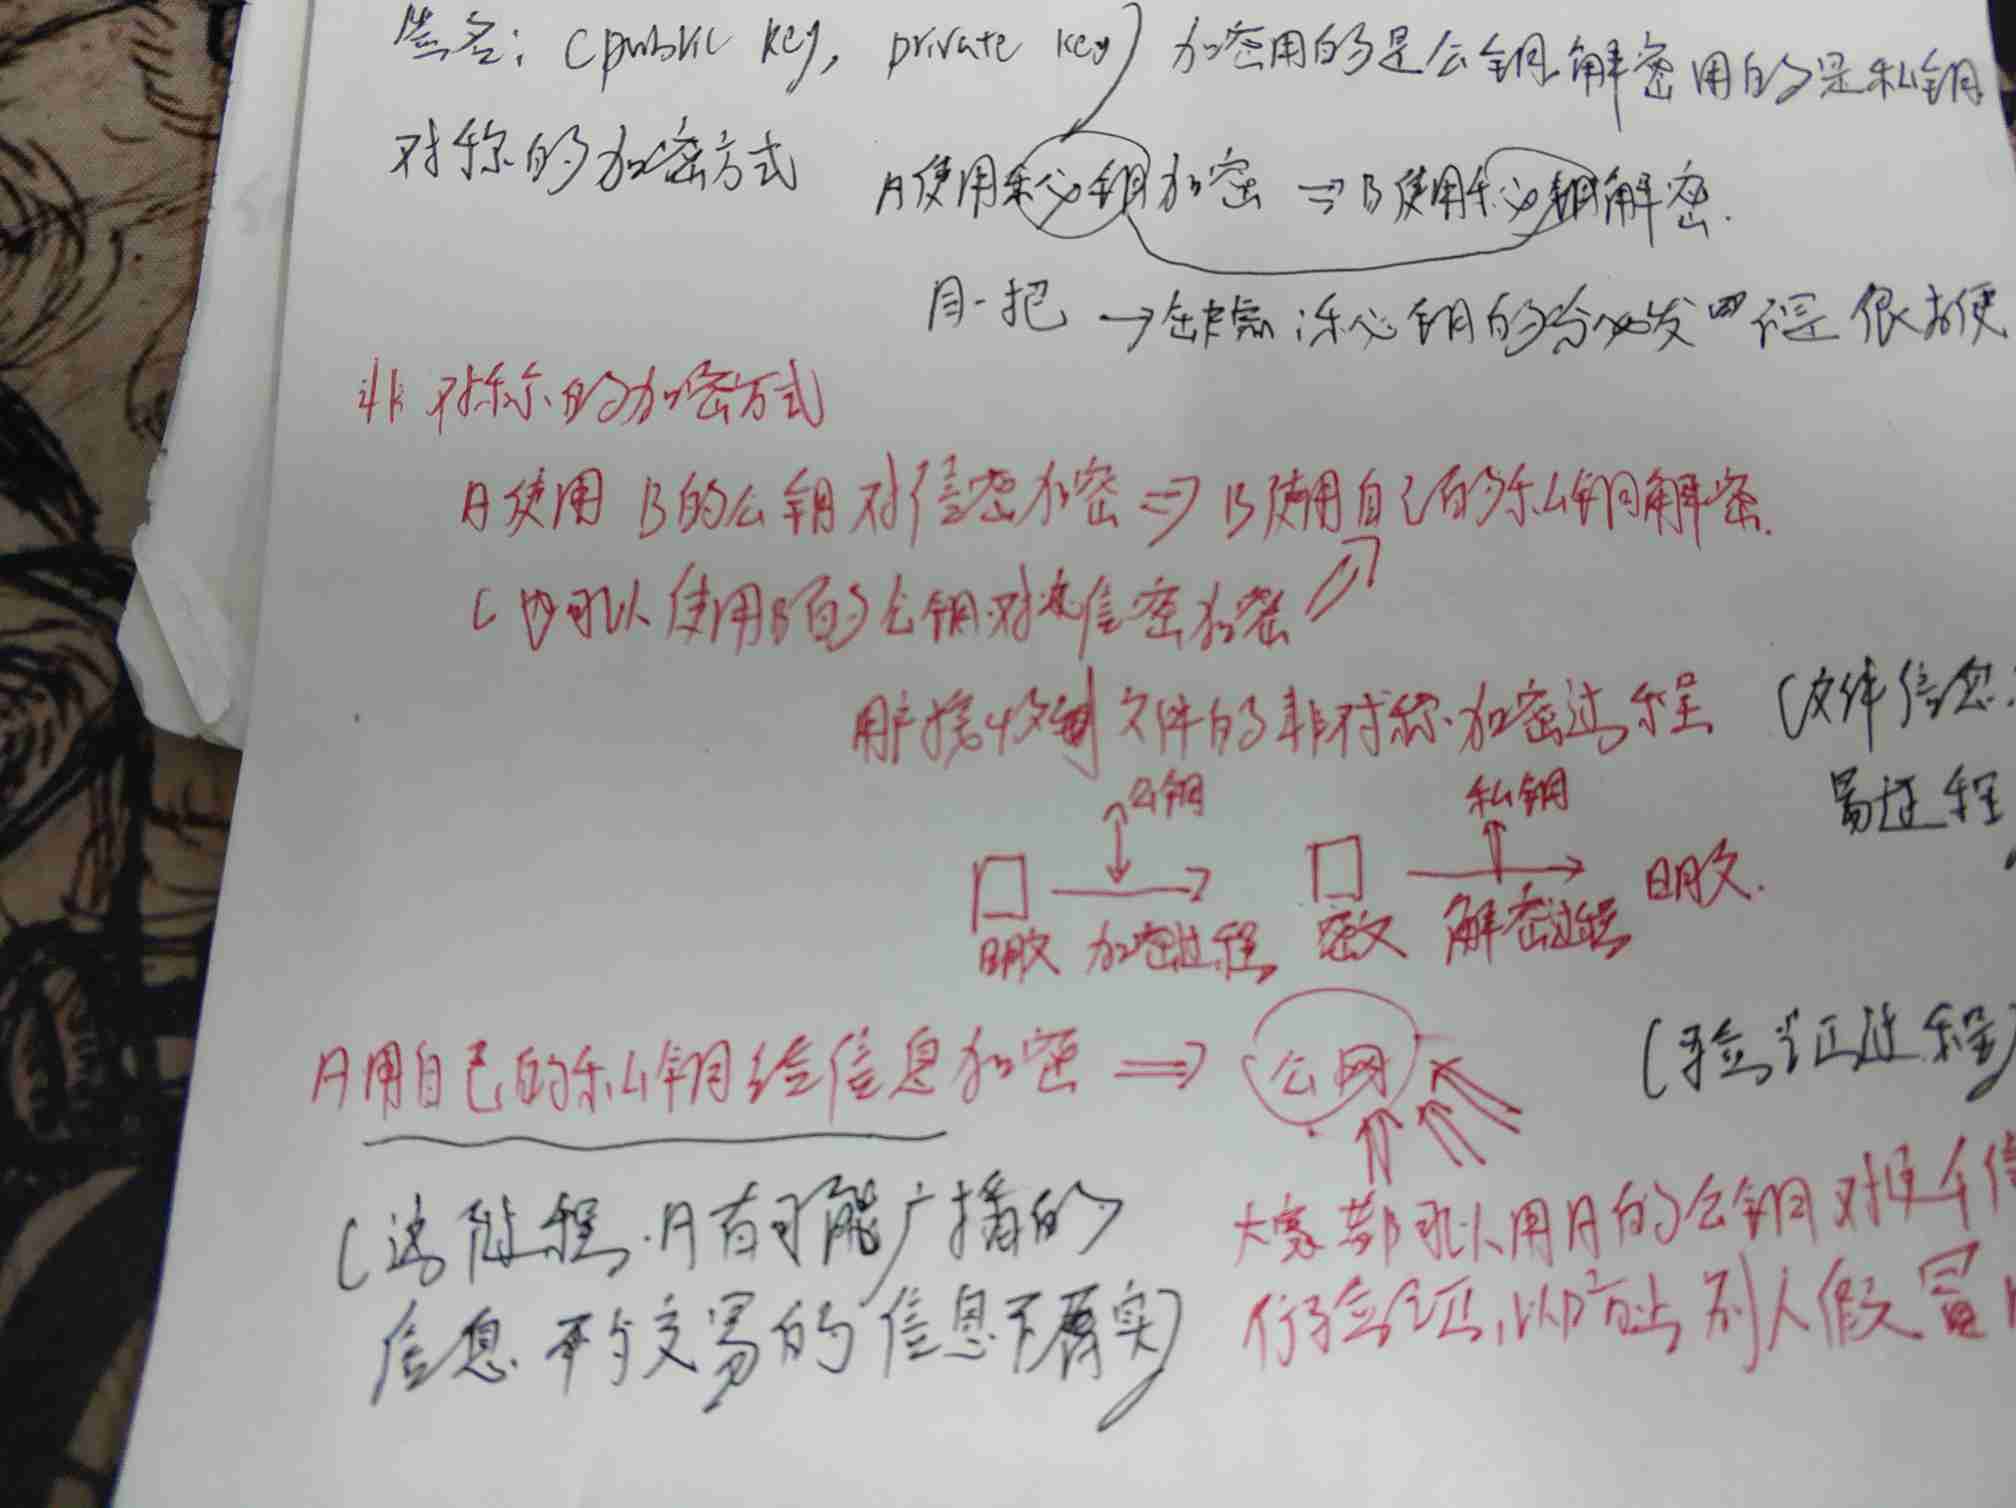 签名: (public key, private key) 加密用的是公钥 解密用的是私钥
对称的加密方式 A使用私钥加密 ⇒ B使用私钥解密.
同一把 → 缺点: 私钥的分发 很不便
非对称的加密方式
A使用 B的公钥对信密加密 ⇒ B使用自己的私钥解密.
C也可以使用B的公钥对信密加密
用户接收到文件的非对称加密过程 (文件信息
易过程
公钥 私钥
明文 加密过程 密文 解密过程 明文.
A用自己的私钥给信息加密 ⇒ 公网 (验证过程)
(这过程.A有可能广播的
信息 交易的信息不属实)
大家都可以用A的公钥对
行验证,以防止别人假冒